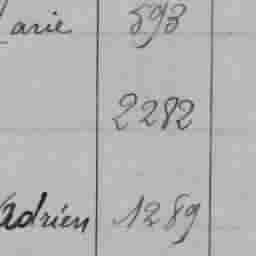 Marie 593
2282
Adrien 1289